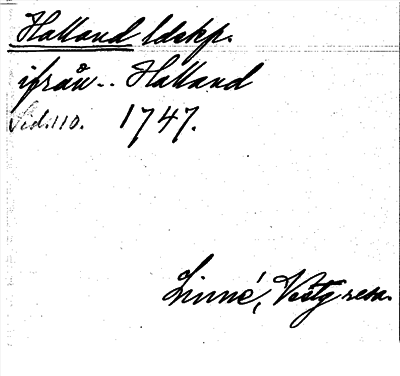 Halland ldskp.
ifrån.. Halland
Sid. 110. 1747.
Linné, Vestg resa.